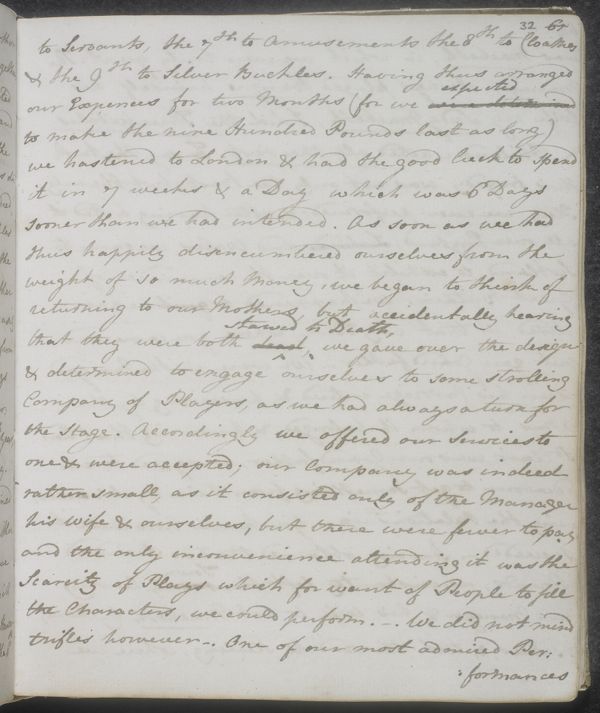 32 61
to Servants, the 7th to Amusements the 8th to Cloathes
& the 9th to Silver Buckles. Having thus arranged
our Expences for two Months (for we expected
to make the nine Hundred Pounds last as long)
we hastened to London & had the good luck to spend
it in 7 weeks & a Day which was 6 Days
sooner than we had intended. As soon as we had
thus happily disencumbered ourselves from the
weight of so much Money, we began to think of
returning to our Mothers, but accidentally hearing
that they were both dead starved to Death, we gave over the design
& determined to engage ourselves to some strolling
Company of Players, as we had always a turn for
the Stage. Accordingly we offered our Services to
one & were accepted; our Company was indeed
rather small, as it consisted only of the Manager
his wife & ourselves, but there were fewer to pay
and the only inconvenience attending it was the
Scarcity of Plays which for want of People to fill
the Characters, we could perform. -. We did not mind
trifles however -. One of our most admired Per:
:formances